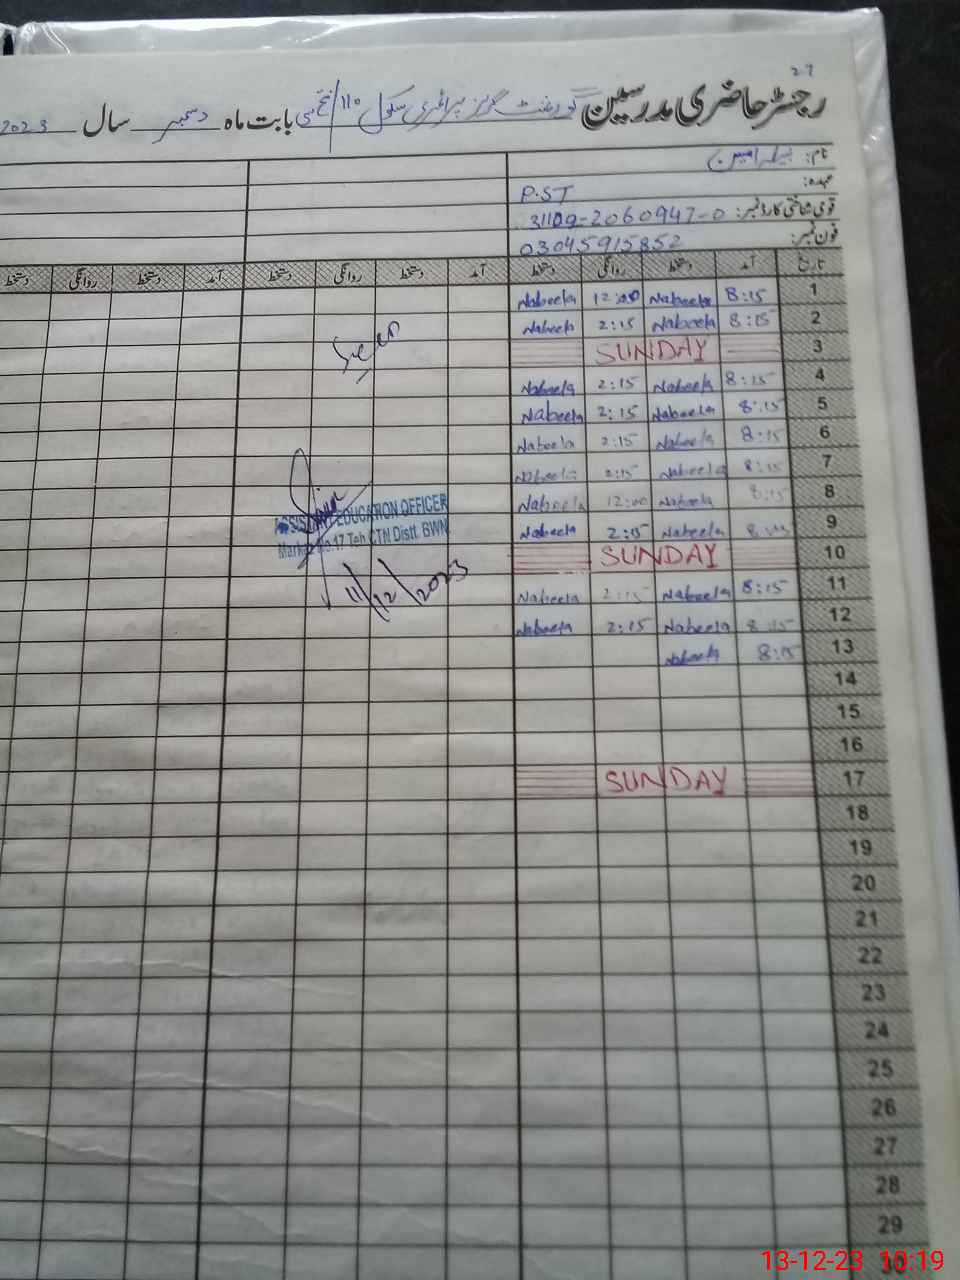 27
رجسٹر حاضری مدرسین گورنمنٹ گرلز پرائمری سکول 110 / فتح سی بابت ماہ دسمبر سال 2023
نام: نبیلہ امین
عہدہ: P.ST
قومی شناختی کارڈ نمبر: 31109-2060947-0
فون نمبر: 03045915852
تاریخ آمد دستخط روانگی دستخط آمد دستخط روانگی دستخط آمد دستخط روانگی دستخط
1 8:15 Nabeela 12:00 Nabeela
2 8:15 Nabeela 2:15 Nabeela
3 SUNDAY
4 8:15 Nabeela 2:15 Nabeela
5 8:15 Nabeela 2:15 Nabeela
6 8:15 Nabeela 2:15 Nabeela
7 8:15 Nabeela 2:15 Nabeela
8 8:15 Nabeela 12:00 Nabeela
9 8:15 Nabeela 2:15 Nabeela
10 SUNDAY
11 8:15 Nabeela 2:15 Nabeela
12 8:15 Nabeela 2:15 Nabeela
13 8:15 Nabeela
14
15
16
17 SUNDAY
18
19
20
21
22
23
24
25
26
27
28
29
30
Seen
ASSISTANT EDUCATION OFFICER
Markaz No.17 Teh CTN Distt. BWN
11/12/2023
13-12-23 10:19